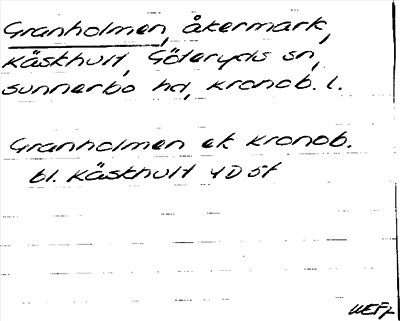 Granholmen, åkermark,
Kåskhult, Göteryds sn,
Sunnerbo hd, Kronob. l.
Granholmen ek Kronob.
bl. Kåskhult 4D5f